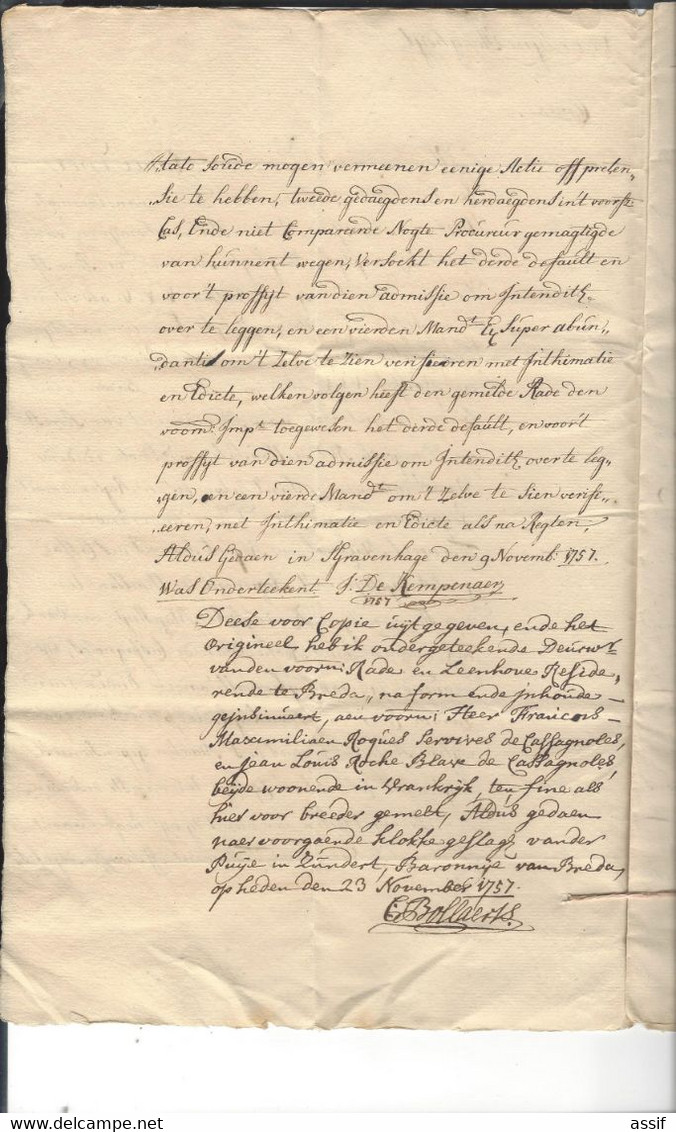 „tate soude mogen vermeenen eenige Actie off preten„
„sie te hebben, tweede gedaegdens en herdaegdens in't voorsz:
Cas, Ende niet Compararde Nogte Procureur gemagtigde
van hunnent wegen, Versockt het derde default en
voor't proffyt van dien admissie om Intendith
over te leggen, en een vierden Mand.t Ex super abun„
„danti om't zelve te zien verifieeren met Inthimatie
en Edicte, welken volgen heeft den gemelde Rade den
voorn: Imp.t toegewesen het derde default, en voor't
proffyt van dien admissie om Intendith over te leg„
„gen, en een vierde Mand.t om't zelve te sien verifi„
„ceren, met Inthimatie en Edicte als na Regten,
Aldus Gedaen in sGravenhage den 9 Novemb: 1757.
Was Onderteekent J: De Kempenaer
1757
Deese voor Copie uijt gegeven, ende het
Origineel heb ik ondergeteekende Deurw.r
vanden voorn: Rade en Leenhove Reside„
rende te Breda, na form ende Inhoude
geinsinueert, aen voorn: Heer Francois
Maximiliaen Roques Servives de Cassagnoles,
en Jean Louis Roche Blave de Cassagnoles,
beijde woonende in Vrankrijk, ten fine als
hier voor breeder gemelt, Aldus gedaen
naer voorgaende klokke geslag vander
Puije in Zundert, Baronnije van Breda,
op heden den 23 November 1757.
Bollaerts.
assif